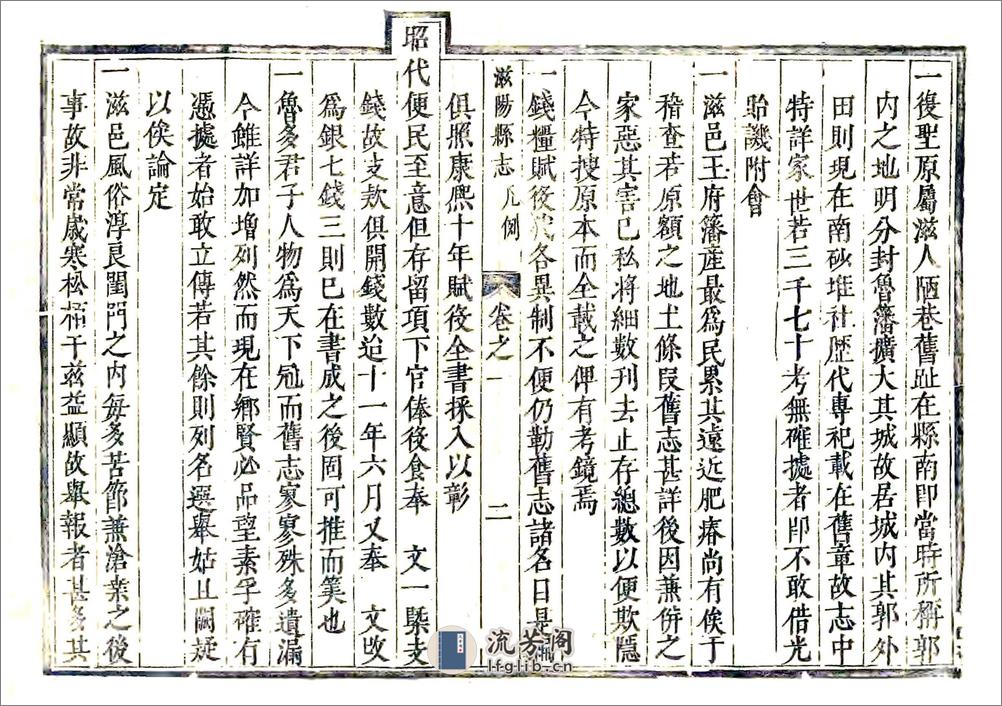 一復聖原屬滋人陋巷舊趾在縣南即當時所稱郭
内之地明分封魯藩擴大其城故居城内其郭外
田則現在南砂堆社歷代專祀載在舊章故志中
特詳家世若三千七十考無確據者即不敢借光
貽譏附會
一滋邑王府籓産最爲民累其遠近肥瘠尚有俟于
稽查若原額之地土條叚舊志甚詳後因兼併之
家惡其害已私將細數刊去止存總數以便欺隱
今特搜原本而全載之俾有考鏡焉
一錢糧賦役代各異制不便仍勒舊志諸名目是
滋陽縣志 凡例 卷之一 二
俱照康熙十年賦役全書採入以彰
昭代便民至意但存留項下官俸役食奉 文一槩支
錢故支欵俱開錢數迨十一年六月又奉 文改
爲銀七錢三則已在書成之後固可推而筭也
一魯多君子人物爲天下冠而舊志寥寥殊多遺漏
今雖詳加增列然而現在鄉賢必品望素孚確有
憑據者始敢立傳若其餘則列名選舉姑且闕疑
以俟論定
一滋邑風俗淳良閨門之内每多苦節兼滄桒之後
事故非常歲寒松栢于兹益顯故舉報者甚多其
流芳阁
lfglib.cn